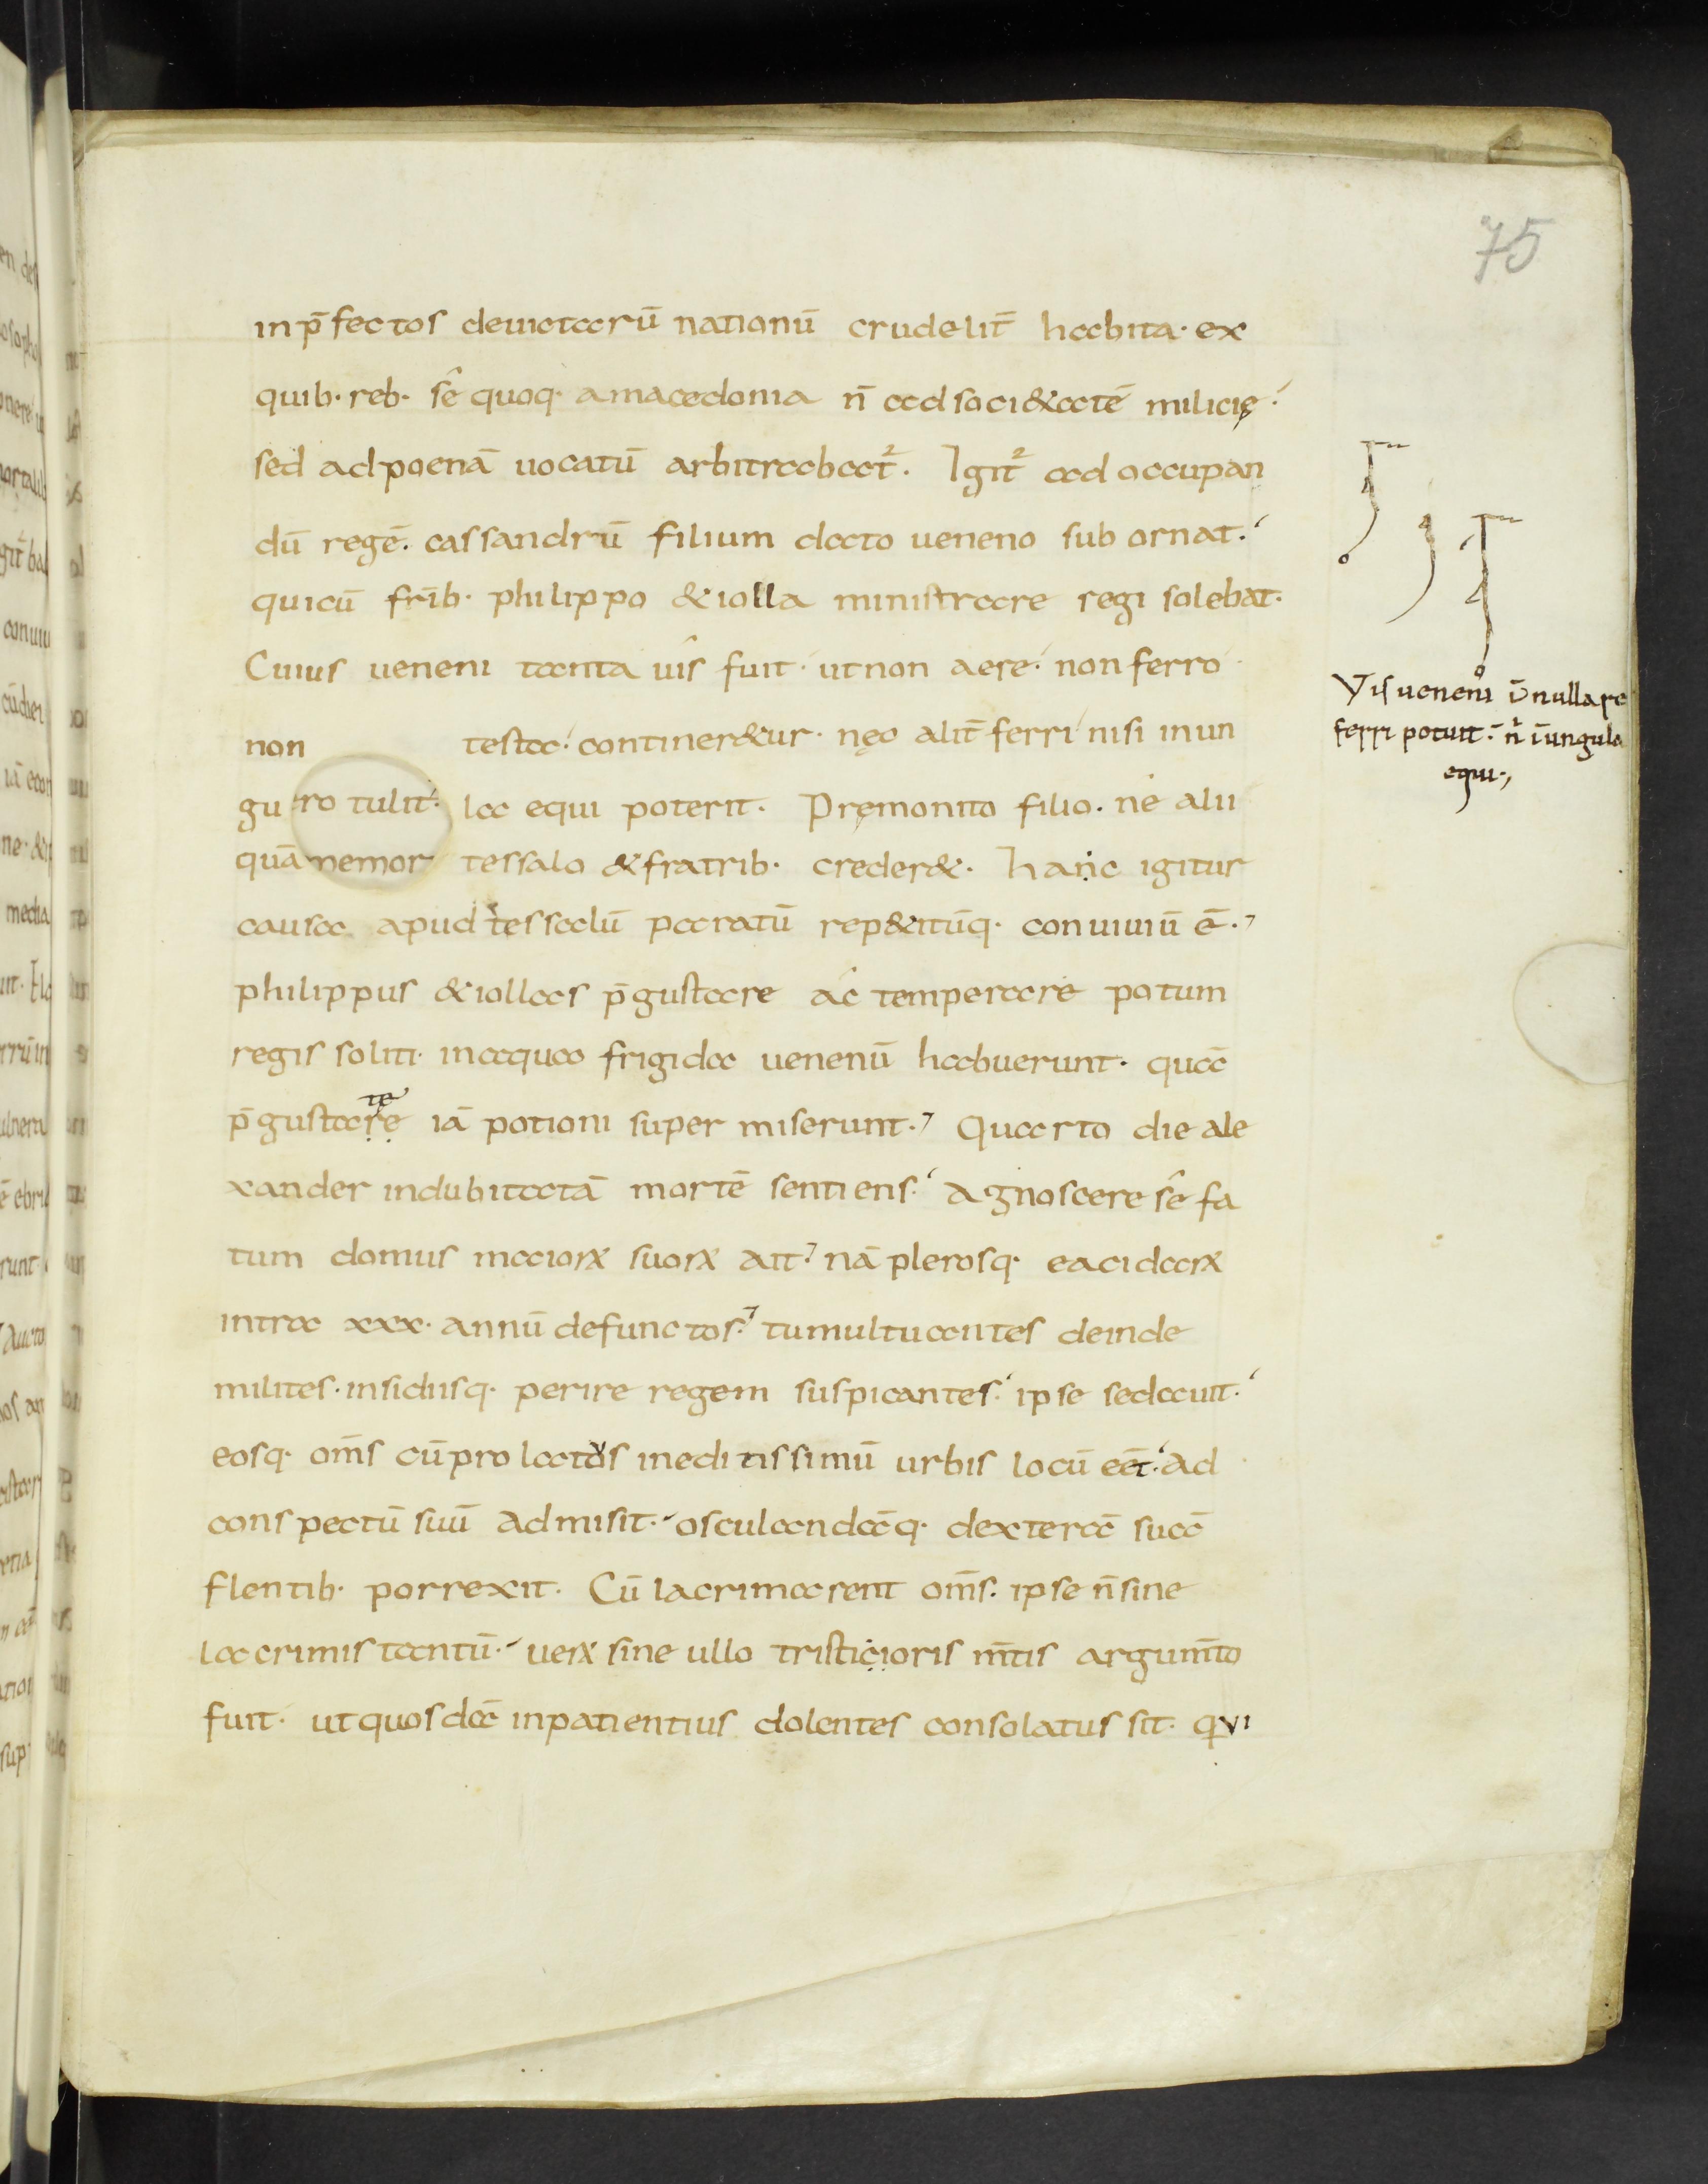 75
inp̄fectos deuictarū nationū crudelit̄ habita· ex
quib· reb· sê quoq· amacedonia n̄ adsoci&atē milicię·
sed adpoenā uocatū arbitrabat᷑. Igit᷑ ad occupan
dū regē. cassandrū filium dato ueneno subornat·
quicū frīb· philippo &iolla ministrare regi solebat·
Cuius ueneni tanta uîs fuit· utnon aere· nonferro
non testa· continer&ur· nęc alit̄ ferri nisi inun
gu ro tulit· la equi poterit. Pręmonito filio. né alii
quā nemor tessalo &fratrib· creder&. hanc igitur
causa apud tessalū paratū rep&itūq· conuiuiū ē.
philippus &iollas p̄gustare ac temperare potum
regis soliti· inaqua frigida uenenū habuerunt· quā
p̄gustare te iā potioni super miserunt. Quarto die ale
xander indubitatā mortē sentiens· agnoscere sê fa
tum domus maioꝝ suoꝝ ait· nā plerosq· eacidaꝝ
intra xxx· annū defunctos· tumultuantes deinde
milites· insidiisq· perire regem suspicantes· ipse sedauit·
eosq· om̄s cū prolatus ineditissimū urbis locū eēt· ad
conspectū suū admisit· osculandāq· dexterā suā
flentib· porrexit. Cū lacrimarent om̄s· ipse n̄ sine
lacrimis tantū· ueꝝ sine ullo tristicioris m̄tis argum̄to
fuit· utquosdā inpatientius dolentes consolatus sit· qui
Vis ueneni ū nulla re
ferri potuit· n̄ ī ungula
equi·,